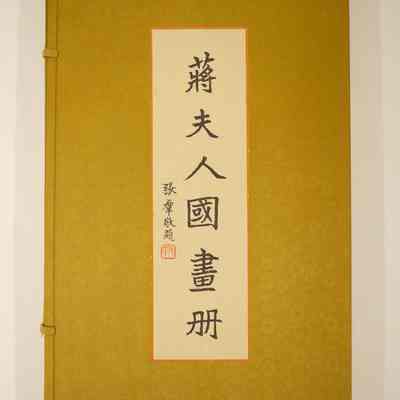 蔣夫人國畫册
張羣敬題